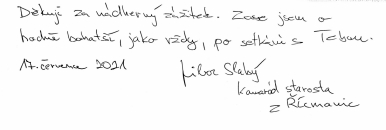 Děkuji za nádherný zážitek. Zase jsem o
hodně bohatší, jako vždy, po setkání s Tebou.
17. července 2021
Libor Slabý
Kamarád starosta
z Říčmanic